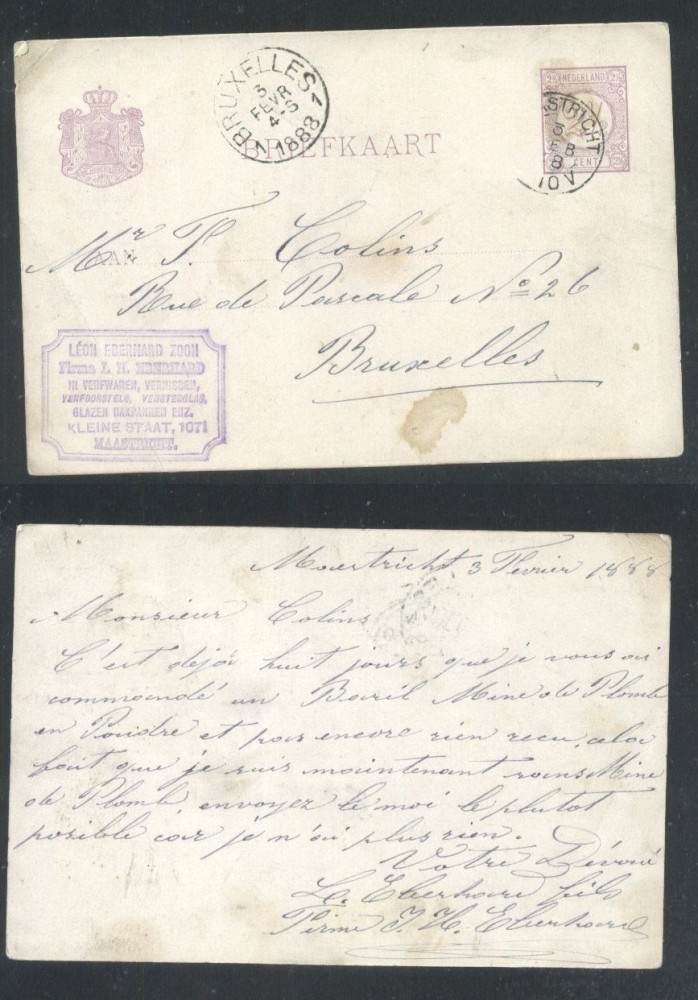 BRUXELLES 1
3
FEVR
4-S
1888
2½ NEDERLAND 2½
CENT
STRICHT
3
10V
BRIEFKAART
AAN
Mr. T. Colins
Rue de Pascale No 26
Bruxelles
LÉON EBERHARD ZOON
Firma I. H. EBERHARD
IN VERFWAREN, VERNISSEN,
VERFBORSTELS, VENSTERGLAS,
GLAZEN DAKPANNEN ENZ.
KLEINE STAAT, 1071
MAASTRICHT.
Maestricht 3 Fevrier 1888
Monsieur Colins
C'est déjà huit jours que je vous ai
commandé un Baril Mine de Plomb
en Poudre et pas encore rien recu, cela
fait que je suis maintenant sans Mine
de Plomb, envoyez le moi le plutot
posible car je n'ai plus rien.
Votre Dévoué
L. Eberhard fils
Firme J. H. Eberhard